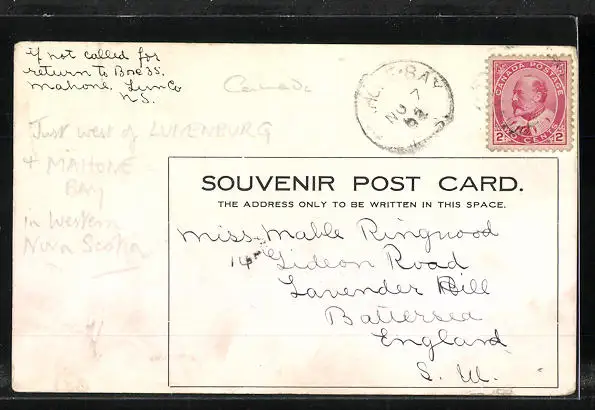 if not called for
return to Box 35.
Mahone, Lun Co
N.S.
Canada
MAHONE-BAY
NO 7
02
CANADA POSTAGE
2 CENTS 2
Just west of LUNENBURG
+ MAHONE
BAY
in western
Nova Scotia
SOUVENIR POST CARD.
THE ADDRESS ONLY TO BE WRITTEN IN THIS SPACE.
Miss. Mable Ringwood
14 Gideon Road
Lavender Hill
Battersea
England
S. W.